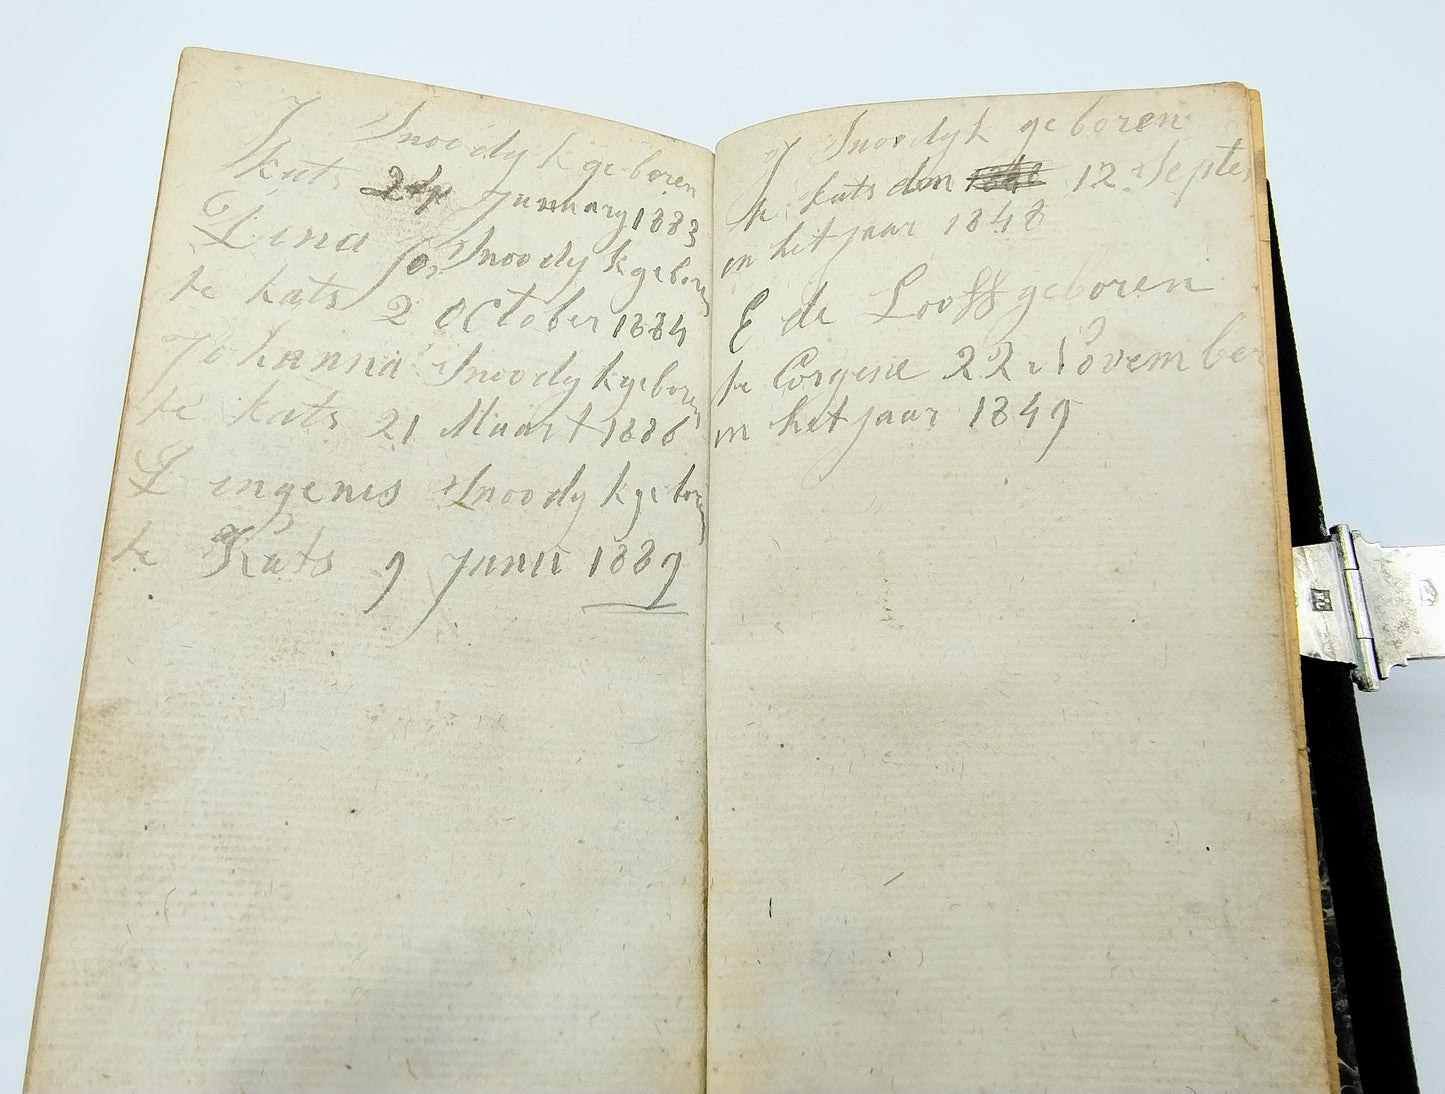 J Snoodyk geboren
kats 24 January 1883
Lina Snoodyk geboren
te kats 2 October 1884
Johanna Snoodyk geboren
te kats 21 Maart 1886
Lingenis Snoodyk geboren
te Kats 9 Junii 1889
J Snoodyk geboren
te kats den 12 Septe
in het jaar 1848
E de Looff geboren
te Corgene 22 November
in het jaar 1849